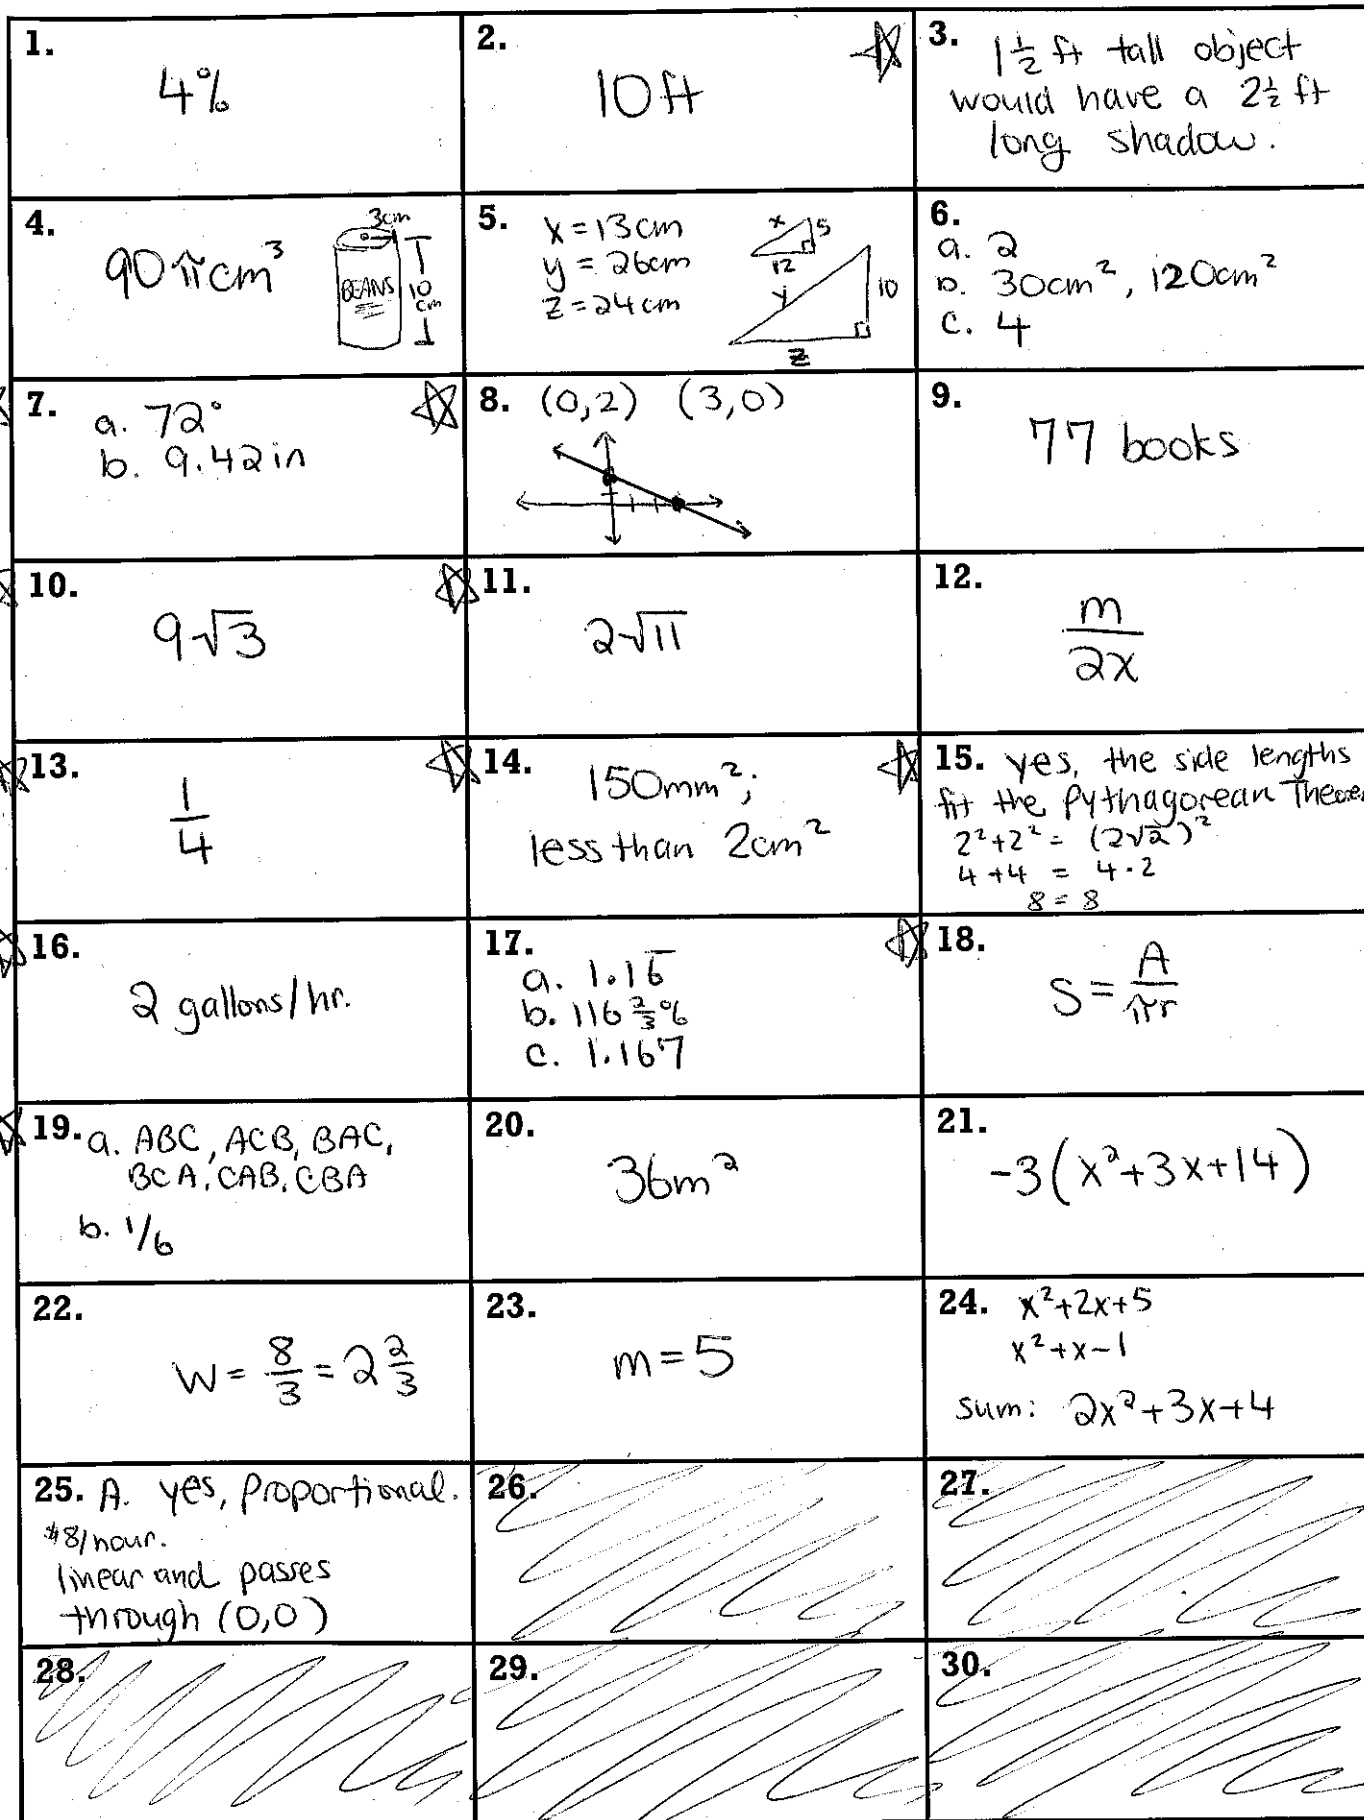 1.
4%
2.
10ft
3. 1½ ft tall object
would have a 2½ ft
long shadow.
4.
90πcm³
3cm
BEANS
10
cm
5.
x=13cm
y=26cm
z=24cm
x
5
12
y
10
z
6.
a. 2
b. 30cm², 120cm²
c. 4
7.
a. 72°
b. 9.42in
8. (0,2) (3,0)
9.
77 books
10.
9√3
11.
2√11
12.
m/2x
13.
1/4
14.
150mm²;
less than 2cm²
15. yes, the side lengths
fit the Pythagorean
2²+2² = (2√2)²
4+4 = 4·2
8=8
16.
2 gallons/hr.
17.
a. 1.16̅
b. 116⅔%
c. 1.167
18.
S=A/πr
19. a. ABC, ACB, BAC,
BCA, CAB, CBA
b. 1/6
20.
36m²
21.
-3(x²+3x+14)
22.
W=8/3=2⅔
23.
m=5
24. x²+2x+5
x²+x-1
sum: 2x²+3x+4
25. A. yes, proportional.
$8/hour.
linear and passes
through (0,0)
26.
27.
28.
29.
30.